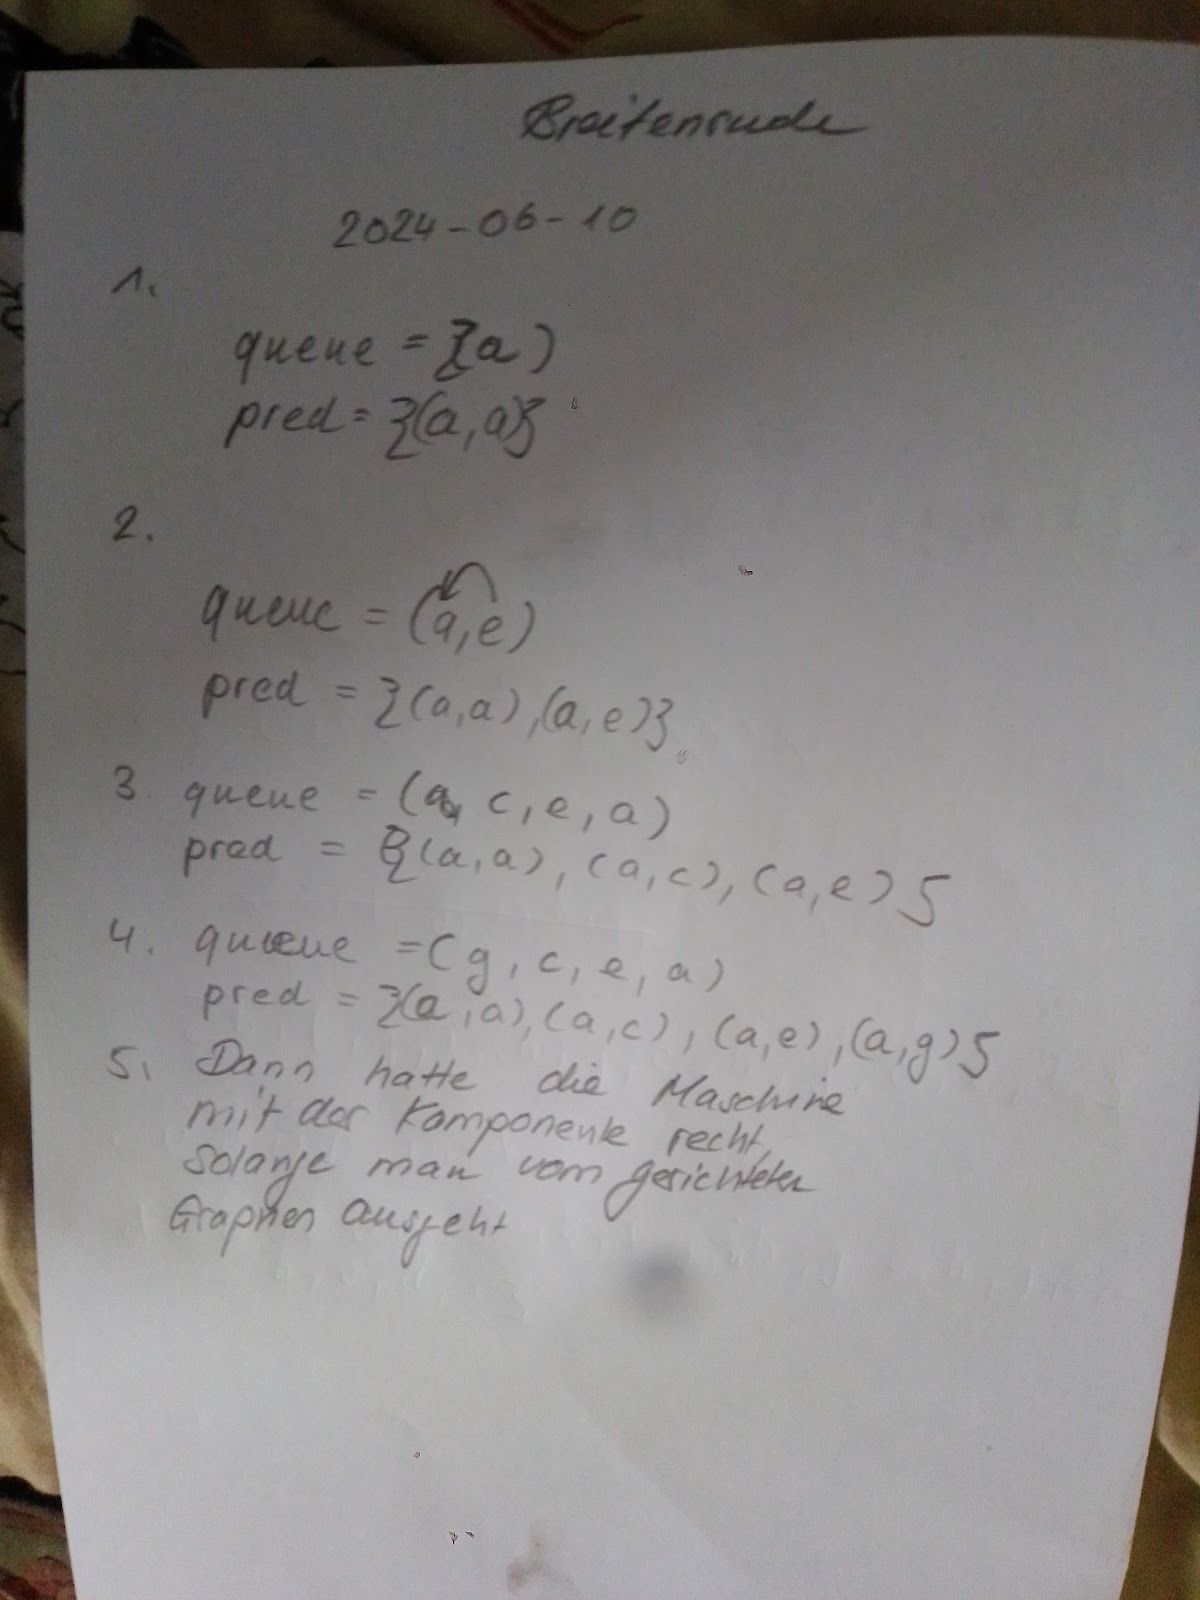 Breitensuche
2024-06-10
1.
queue = {a)
pred = {(a,a)}
2.
queue = (a,e)
pred = {(a,a),(a,e)}
3. queue = (a, c, e, a)
pred = {(a,a), (a,c), (a,e)}
4. queue = (g, c, e, a)
pred = {(a,a), (a,c), (a,e), (a,g)}
5. Dann hatte die Maschine
mit der Komponente recht,
Solange man vom gerichteten
Graphen ausgeht